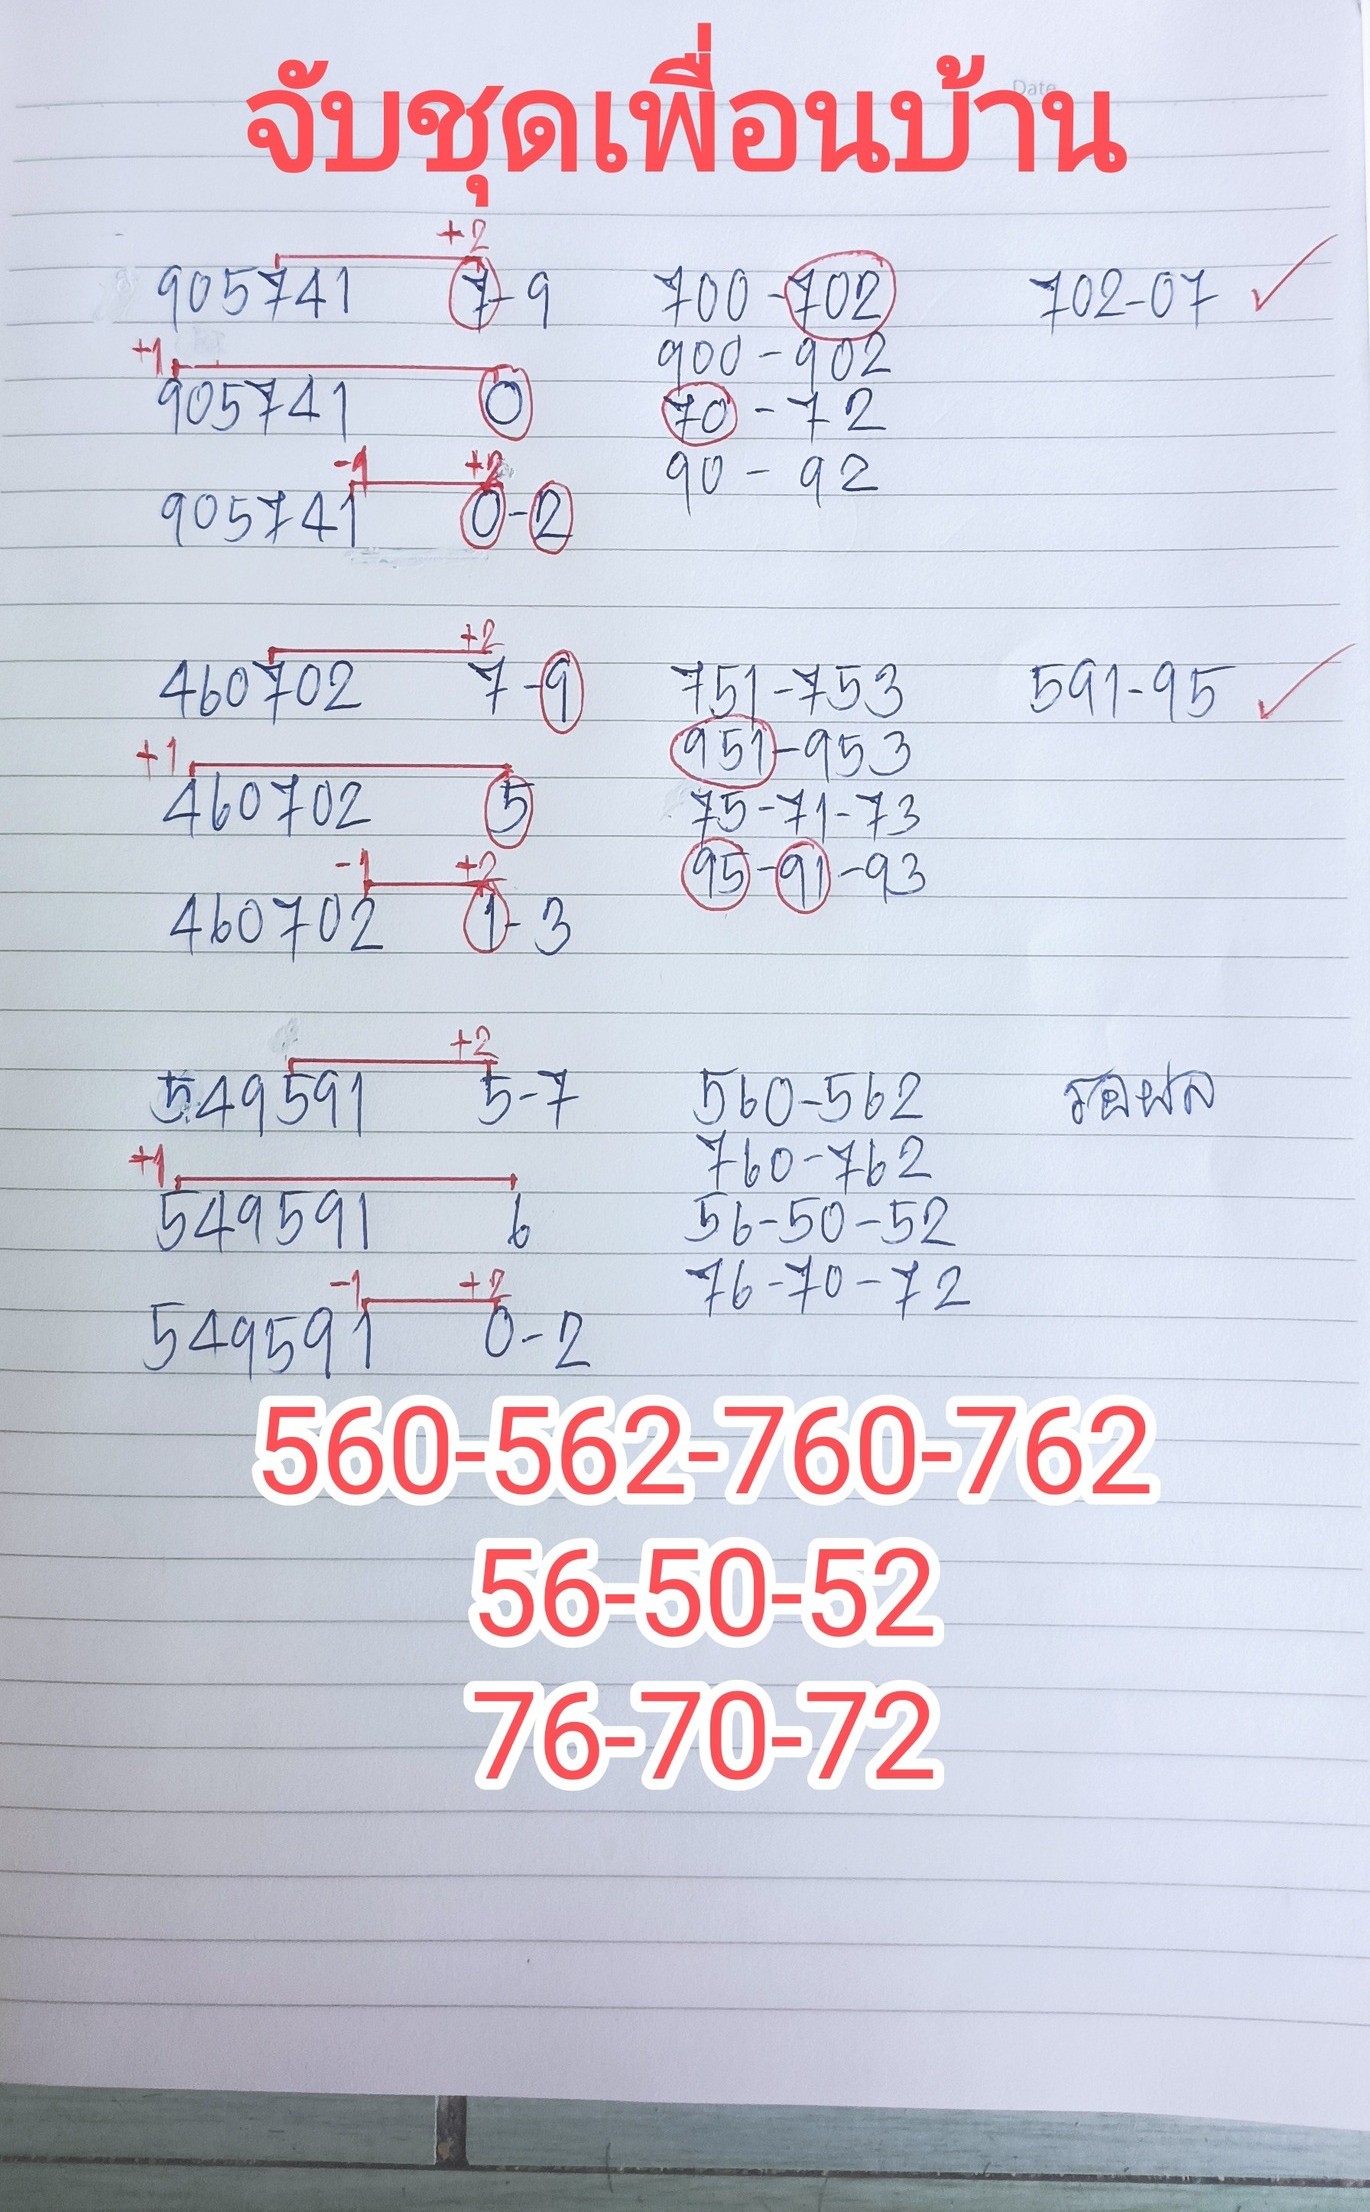 จับชุดเพื่อนบ้าน
Date
+2
905741 7-9 700-702 702-07 ✓
900-902
+1
905741 0 70-72
-1 +2 90-92
905741 0-2
+2
460702 7-9 751-753 591-95 ✓
951-953
+1
460702 5 75-71-73
-1 +2 95-91-93
460702 1-3
+2
549591 5-7 560-562 รอผล
760-762
+1
549591 6 56-50-52
-1 +2 76-70-72
549591 0-2
560-562-760-762
56-50-52
76-70-72